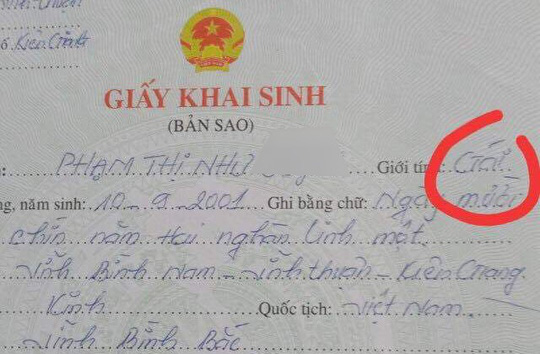 số Kiên Giang
GIẤY KHAI SINH
(BẢN SAO)
PHẠM THỊ NHƯ Giới tính: Gái
năm sinh: 10-9-2001 Ghi bằng chữ: Ngày mười
chín năm Hai nghìn linh một
Vĩnh Bình Nam - Vĩnh Thuận - Kiên Giang
Kinh Quốc tịch: Việt Nam
Vĩnh Bình Bắc